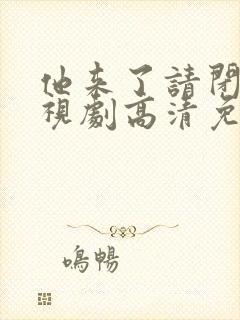 他来了請閉
視劇高清免
鳴暢